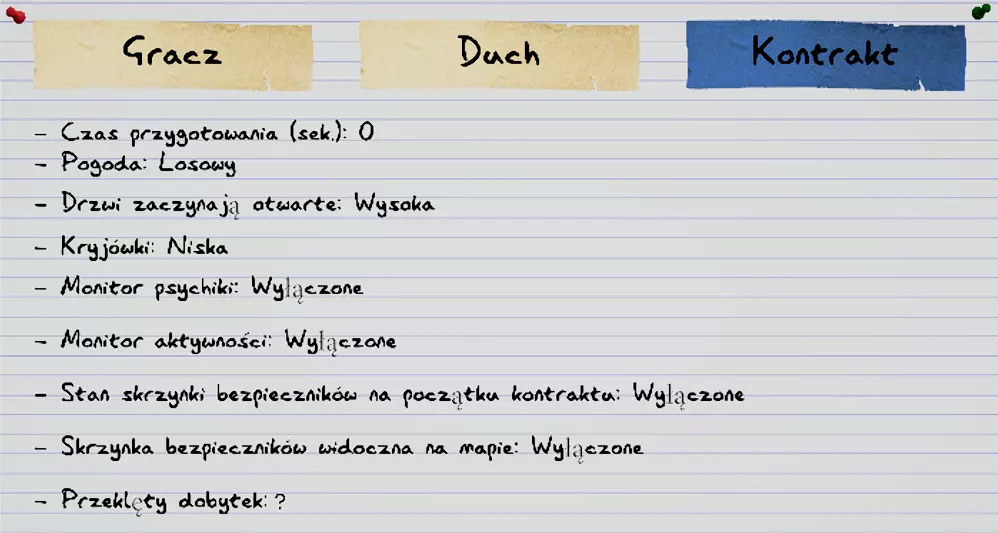 Gracz Duch Kontrakt
- Czas przygotowania (sek.): 0
- Pogoda: Losowy
- Drzwi zaczynają otwarte: Wysoka
- Kryjówki: Niska
- Monitor psychiki: Wyłączone
- Monitor aktywności: Wyłączone
- Stan skrzynki bezpieczników na początku kontraktu: Wyłączone
- Skrzynka bezpieczników widoczna na mapie: Wyłączone
- Przeklęty dobytek: ?